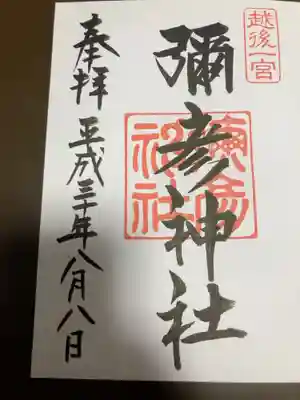 越後一宮
彌彦神社
彌彦神社
奉拝 平成三十年八月八日